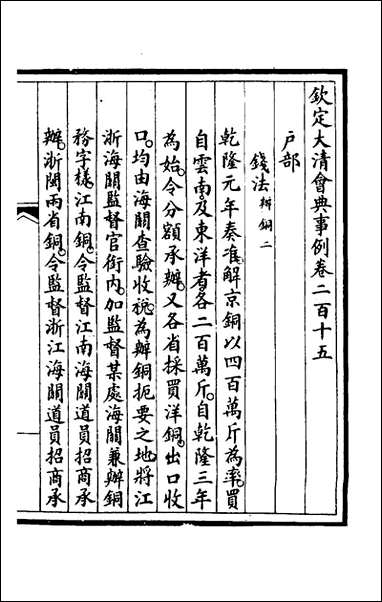 欽定大清會典事例卷二百十五
戶部
錢法辦銅二
乾隆元年奏准。解京銅以四百萬斤為率。買
自雲南及東洋者。各二百萬斤。自乾隆三年
為始。令分額承辦。又各省採買洋銅。出口收
口。均由海關查驗收稅。為辦銅扼要之地。將江
浙海關監督官銜內。加監督某處海關兼辦銅
務字樣。江南銅。令監督江南海關道員招商承
辦。浙閩兩省銅。令監督浙江海關道員招商承